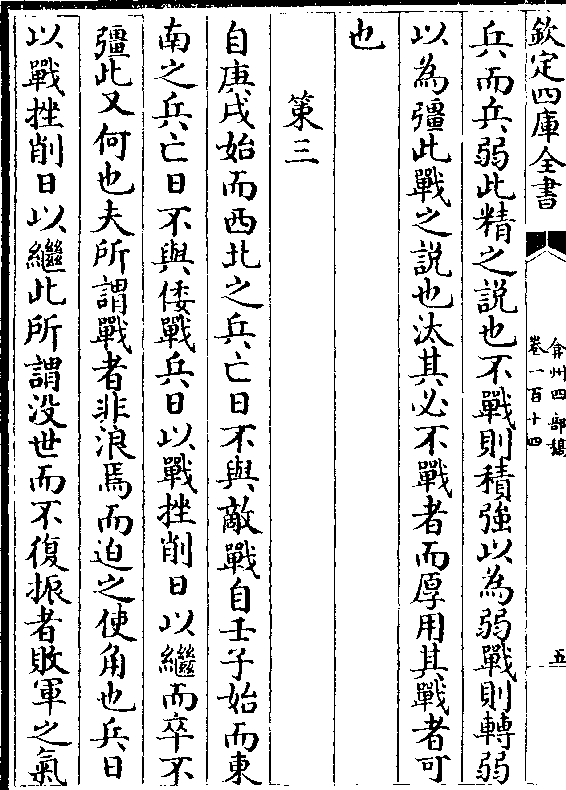 欽定四庫全書
弇州四部稿
卷一百十四
五
兵而兵弱此精之説也不戰則積強以為弱戰則轉弱
以為彊此戰之説也汰其必不戰者而厚用其戰者可
也
第三
自庚戌始而西北之兵亡日不與敵戰自壬子始而東
南之兵亡日不與倭戰兵日以戰挫削日以繼而卒不
彊此又何也夫所謂戰者非浪焉而迫之使角也兵日
以戰挫削日以繼此所謂没世而不復振者敗軍之氣